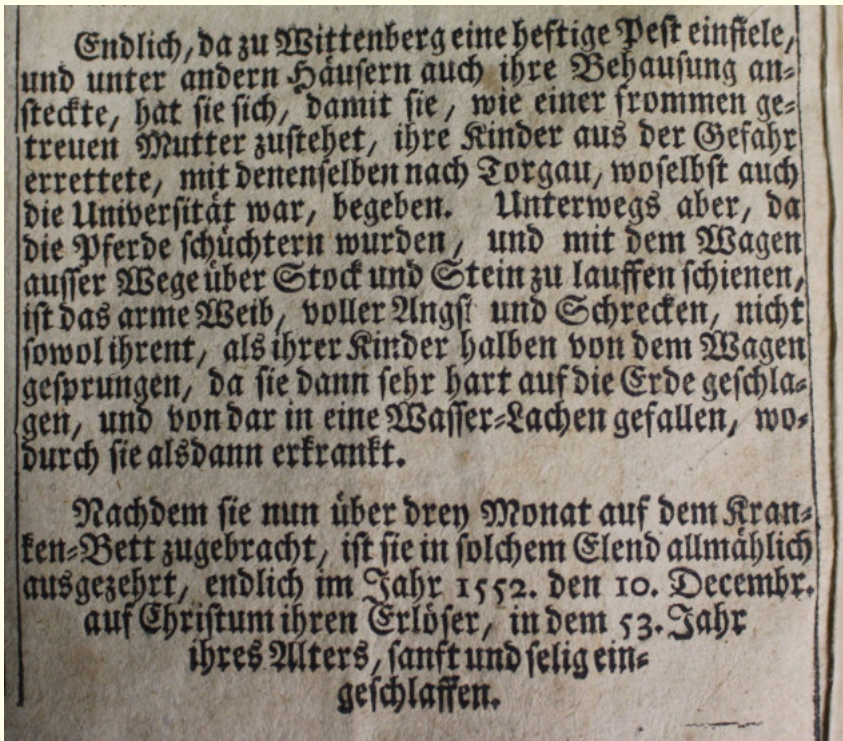 Endlich, da zu Wittenberg eine heftige Pest einfiele,
und unter andern Häusern auch ihre Behausung an-
steckte, hat sie sich, damit sie, wie einer frommen ge-
treuen Mutter zustehet, ihre Kinder aus der Gefahr
errettete, mit denenselben nach Torgau, woselbst auch
die Universität war, begeben. Unterwegs aber, da
die Pferde schüchtern wurden, und mit dem Wagen
ausser Wege über Stock und Stein zu lauffen schienen,
ist das arme Weib, voller Angst und Schrecken, nicht
sowol ihrent, als ihrer Kinder halben von dem Wagen
gesprungen, da sie dann sehr hart auf die Erde geschla-
gen, und von dar in eine Wasser-Lachen gefallen, wo-
durch sie alsdann erkrankt.
Nachdem sie nun über drey Monat auf dem Kran-
ken-Bett zugebracht, ist sie in solchem Elend allmählich
ausgezehrt, endlich im Jahr 1552. den 10. Decembr.
auf Christum ihren Erlöser, in dem 53. Jahr
ihres Alters, sanft und selig ein-
geschlaffen.